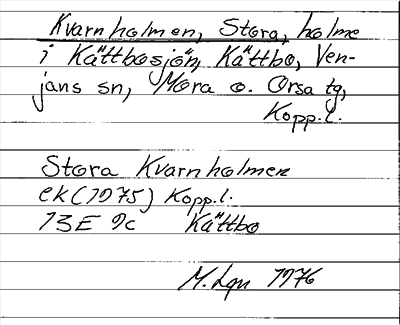 Kvarnholmen, Stora, holme
i Kättbosjön, Kättbo, Ven-
jans sn, Mora o. Orsa tg,
Kopp.l.
Stora Kvarnholmen
ek (1975) Kopp.l.
13E 9c Kättbo
M. Lgn 1976